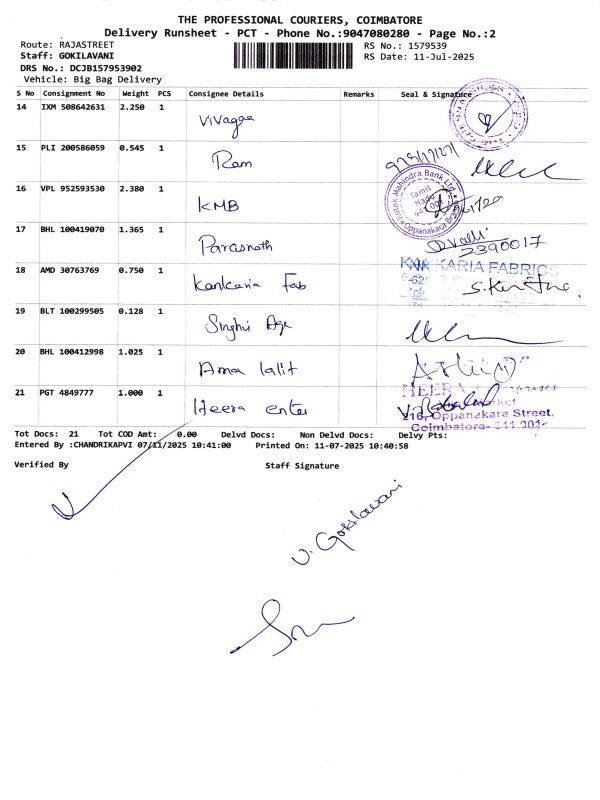 THE PROFESSIONAL COURIERS, COIMBATORE
Delivery Runsheet - PCT - Phone No.:9047080280 - Page No.:2
Route: RAJASTREET RS No.: 1579539
Staff: GOKILAVANI RS Date: 11-Jul-2025
DRS No.: DCJB157953902
Vehicle: Big Bag Delivery
S No Consignment No Weight PCS Consignee Details Remarks Seal & Signature
14 IXM 508642631 2.250 1
15 PLI 200586059 0.545 1 Ram
16 VPL 952593530 2.380 1 KMB
Kotak Mahindra Bank Ltd. Tamil Nadu Oppanakara
17 BHL 100419070 1.365 1 Parasnath
2390017
18 AMD 30763769 0.750 1 Kankaria Fab
KARIA FABRICS
19 BLT 100299505 0.128 1 Singhi Age
20 BHL 100412998 1.025 1 Ama lalit
21 PGT 4849777 1.000 1 Heera enter
HEERA
Oppanakara Street,
Coimbatore-
Tot Docs: 21 Tot COD Amt: 0.00 Delvd Docs: Non Delvd Docs: Delvy Pts:
Entered By :CHANDRIKAPVI 07/11/2025 10:41:00 Printed On: 11-07-2025 10:40:58
Verified By Staff Signature
V. Gokilavani